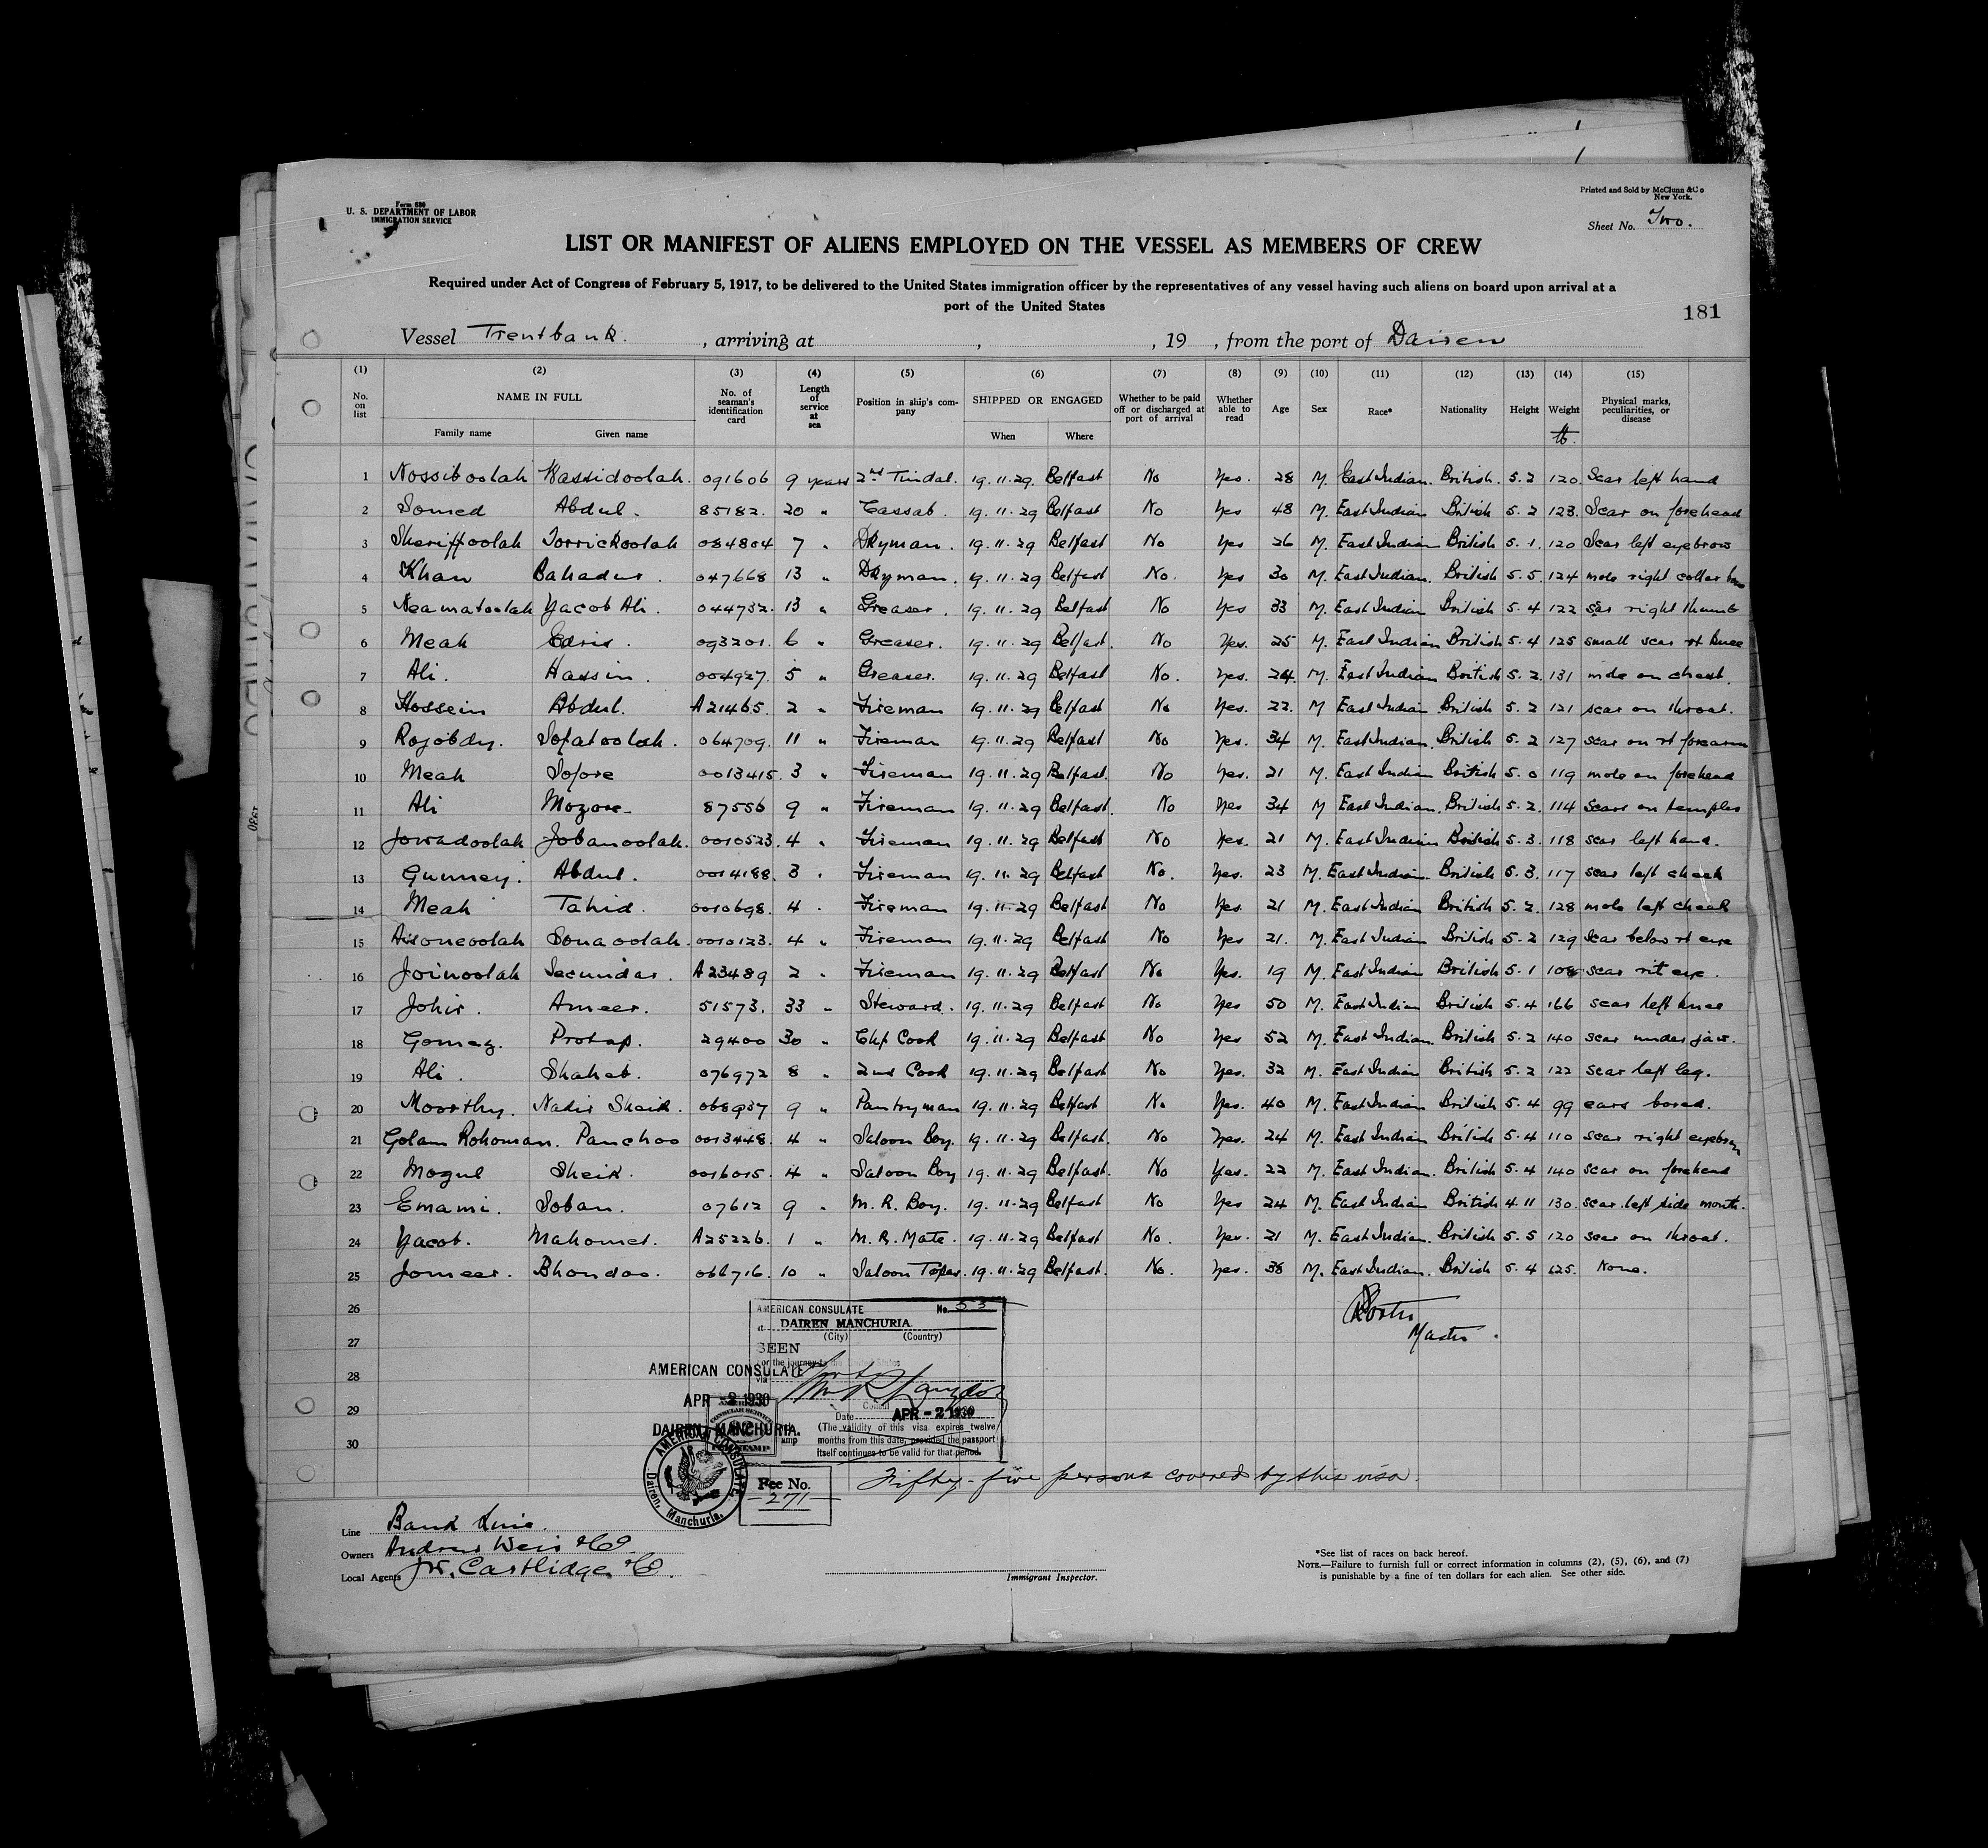 Form 680
U. S. DEPARTMENT OF LABOR
IMMIGRATION SERVICE
Printed and Sold by McClunn & Co
New York.
Sheet No. Two.
LIST OR MANIFEST OF ALIENS EMPLOYED ON THE VESSEL AS MEMBERS OF CREW
Required under Act of Congress of February 5, 1917, to be delivered to the United States immigration officer by the representatives of any vessel having such aliens on board upon arrival at a
port of the United States
181
Vessel Trentbank. , arriving at , , 19 , from the port of Dairen
(1) (2) (3) (4) (5) (6) (7) (8) (9) (10) (11) (12) (13) (14) (15)
No. on list NAME IN FULL Family name Given name No. of seaman's identification card Length of service at sea Position in ship's company SHIPPED OR ENGAGED When Where Whether to be paid off or discharged at port of arrival Whether able to read Age Sex Race* Nationality Height Weight lb. Physical marks, peculiarities, or disease
1 Nossiboolah Wassidoolah. 091606 9 years 2nd Tindal. 19.11.29. Belfast No Yes. 28 M. East Indian. British. 5.2 120. Scar left hand
2 Somed Abdul. 85182. 20 " Cassab. 19.11.29 Belfast No Yes 48 M. East Indian British 5.2 123. Scar on forehead
3 Sheriffoolah Torrickoolah 084804 7 " Dkyman. 19.11.29 Belfast No Yes 26 M. East Indian British 5.1. 120 Scar left eyebrow
4 Khan Bahadur. 047668 13 " Dkyman. 19.11.29 Belfast No. Yes 30 M. East Indian. British 5.5. 124 mole right collar bone
5 Neamatoolah Yacob Ali. 044732. 13 " Greaser. 19.11.29 Belfast No Yes 33 M. East Indian British 5.4 122 scar right thumb
6 Meah Edris. 093201. 6 " Greaser. 19.11.29 Belfast. No Yes. 25 M. East Indian British 5.4 125 small scar rt knee
7 Ali. Hassin. 004927. 5 " Greaser. 19.11.29 Belfast No. Yes. 24. M. East Indian British 5.2. 131 mole on chest.
8 Hossein Abdul. A21465. 2 " Fireman 19.11.29 Belfast No Yes. 22. M East Indian British 5.2 121 scar on throat.
9 Rojobdy. Sofatoolah. 064709. 11 " Fireman 19.11.29 Belfast No Yes. 34 M. East Indian. British 5.2 127 scar on rt forearm
10 Meah Sofore 0013415. 3 " Fireman 19.11.29 Belfast. No Yes. 21 M. East Indian British 5.0 119 mole on forehead
11 Ali Mozore 87556 9 " Fireman 19.11.29 Belfast. No Yes 34 M East Indian. British 5.2. 114 scars on temples
12 Jowadoolah Jobanoolah. 0010523. 4 " Fireman 19.11.29 Belfast No Yes. 21 M. East Indian British 5.3. 118 scar left hand.
13 Gunney. Abdul. 0014188. 3 " Fireman 19.11.29 Belfast No. Yes. 23 M. East Indian. British 5.3. 117 scar left cheek
14 Meah Tahid. 0010698. 4 " Fireman 19.11.29 Belfast No Yes. 21 M. East Indian British 5.2. 128 mole left cheek
15 Sonaoolah. 0010123. 4 " Fireman 19.11.29 Belfast No Yes 21. M. East Indian British 5.2 129 Scar below rt eye
16 Joinoolah Secundar. A23489 2 " Fireman 19.11.29 Belfast No Yes. 19 M. East Indian British 5.1 108 scar rit eye.
17 Johir. Ameer. 51573. 33 " Steward. 19.11.29 Belfast No Yes 50 M. East Indian British 5.4 166 scar left knee
18 Gomez. Protap. 29400 30 " Chf Cook 19.11.29 Belfast No Yes 52 M. East Indian. British 5.2 140 scar under jaw.
19 Ali. Shaheb. 076972 8 " 2nd Cook 19.11.29 Belfast No Yes. 32 M. East Indian British 5.2 122 scar left leg.
20 Moorthy. Nadir Sheik. 068937 9 " Pantryman 19.11.29 Belfast No Yes. 40 M. East Indian British 5.4 99 ears bored.
21 Golam Rohoman. Panchoo 0013448. 4 " Saloon Boy. 19.11.29 Belfast. No Yes. 24 M. East Indian British 5.4 110 scar right eyebrow
22 Mogul Sheik. 0016015. 4 " Saloon Boy 19.11.29 Belfast. No Yes. 22 M. East Indian. British 5.4 140 scar on forehead
23 Emami. Soban. 07612 9 " M. R. Boy. 19.11.29 Belfast No Yes 24 M. East Indian British 4.11 130. scar left side mouth.
24 Yacob. Mahomed. A25226. 1 " M. R. Mate. 19.11.29 Belfast No. Yes. 21 M. East Indian. British 5.5 120 scar on throat.
25 Jomeer. Bhondoo. 066716. 10 " Saloon Topas. 19.11.29 Belfast. No. Yes. 38 M. East Indian. British 5.4 125. None.
26
27
28
29
30
Master.
AMERICAN CONSULATE No. 53
at DAIREN MANCHURIA
(City) (Country)
SEEN
For the journey to the United States
via
Consul
Date APR - 2 1930
(The validity of this visa expires twelve
months from this date, provided the passport
itself continues to be valid for that period.
AMERICAN CONSULATE
APR - 2 1930
DAIREN, MANCHURIA.
AMERICAN CONSULATE
Dairen, Manchuria.
Fee No.
271
Fifty-five persons covered by this visa.
Line Bank Line.
Owners Andrew Weir & Co.
Local Agents Jno. Cartlidge & Co.
Immigrant Inspector.
*See list of races on back hereof.
NOTE.—Failure to furnish full or correct information in columns (2), (5), (6), and (7)
is punishable by a fine of ten dollars for each alien. See other side.